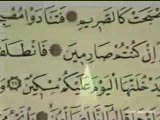 صْبَحَتْ كَالصَّرِيمِ ۝ فَتَنَادَوْا مُصْبِحِ
إِنْ كُنْتُمْ صَارِمِينَ ۝ فَانْطَلَقُ
يَدْخُلَنَّهَا الْيَوْمَ عَلَيْكُمْ مِسْكِينٌ ۝ وَ